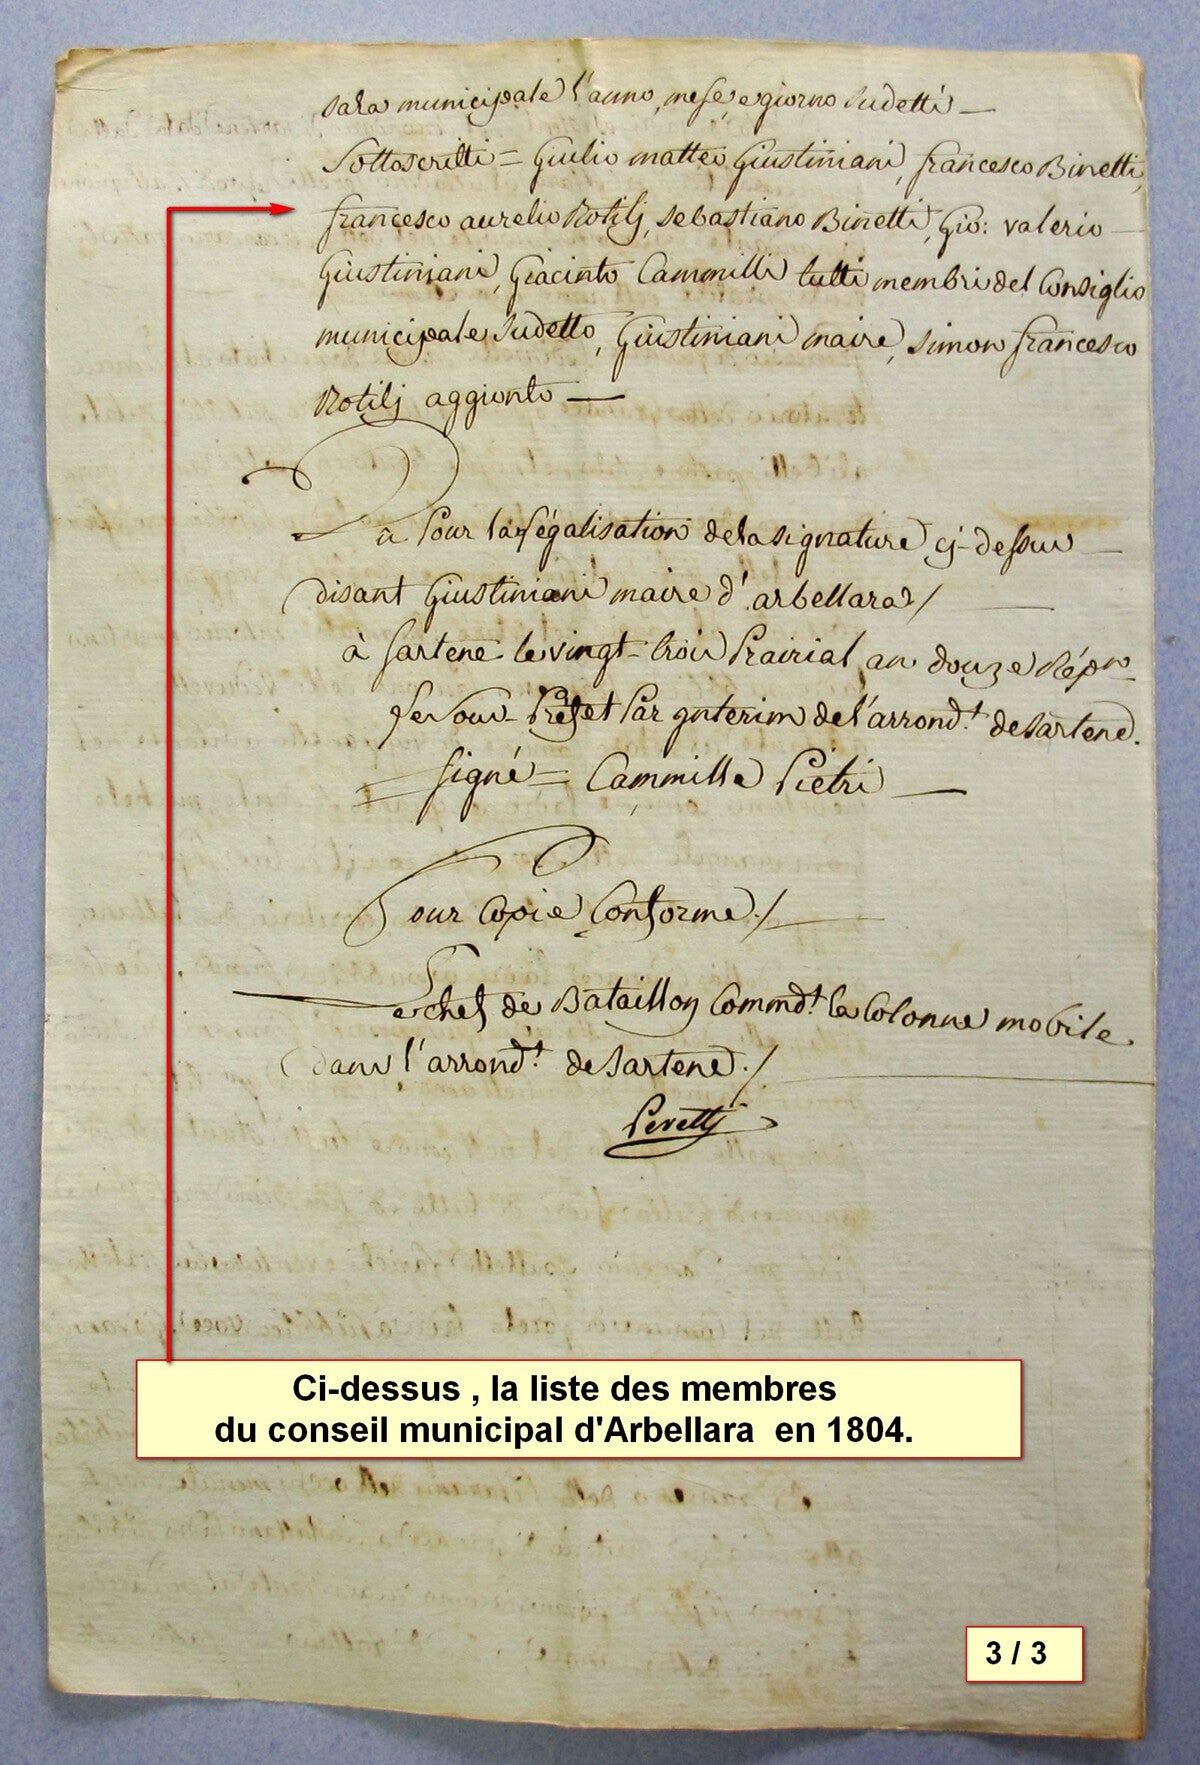 sala municipale l'anno, mese, e giorno sudetti —
Sottoscritti = Giulio matteo Giustiniani, francesco Binetti,
francesco aurelio Rotilj, sebastiano Binetti, Gio: valerio —
Giustiniani, Giacinto Cammilli tutti membri del Consiglio
municipale sudetto, Giustiniani maire, simon francesco
Rotilj aggionto —
Pour la Légalisation de la signature cj-dessus —
disant Giustiniani maire d'arbellara /
à sartene le vingt-trois Prairial an douze Répn
Le sous-Préfet Par jnterim de l'arrondt. de sartene.
signé = Cammille Pietri —
Pour Copie Conforme ./.
Le chef de Bataillon Commdt. la Colonne mobile
dans l'arrondt. de sartene ./.
Peretti
Ci-dessus , la liste des membres
du conseil municipal d'Arbellara en 1804.
3 / 3